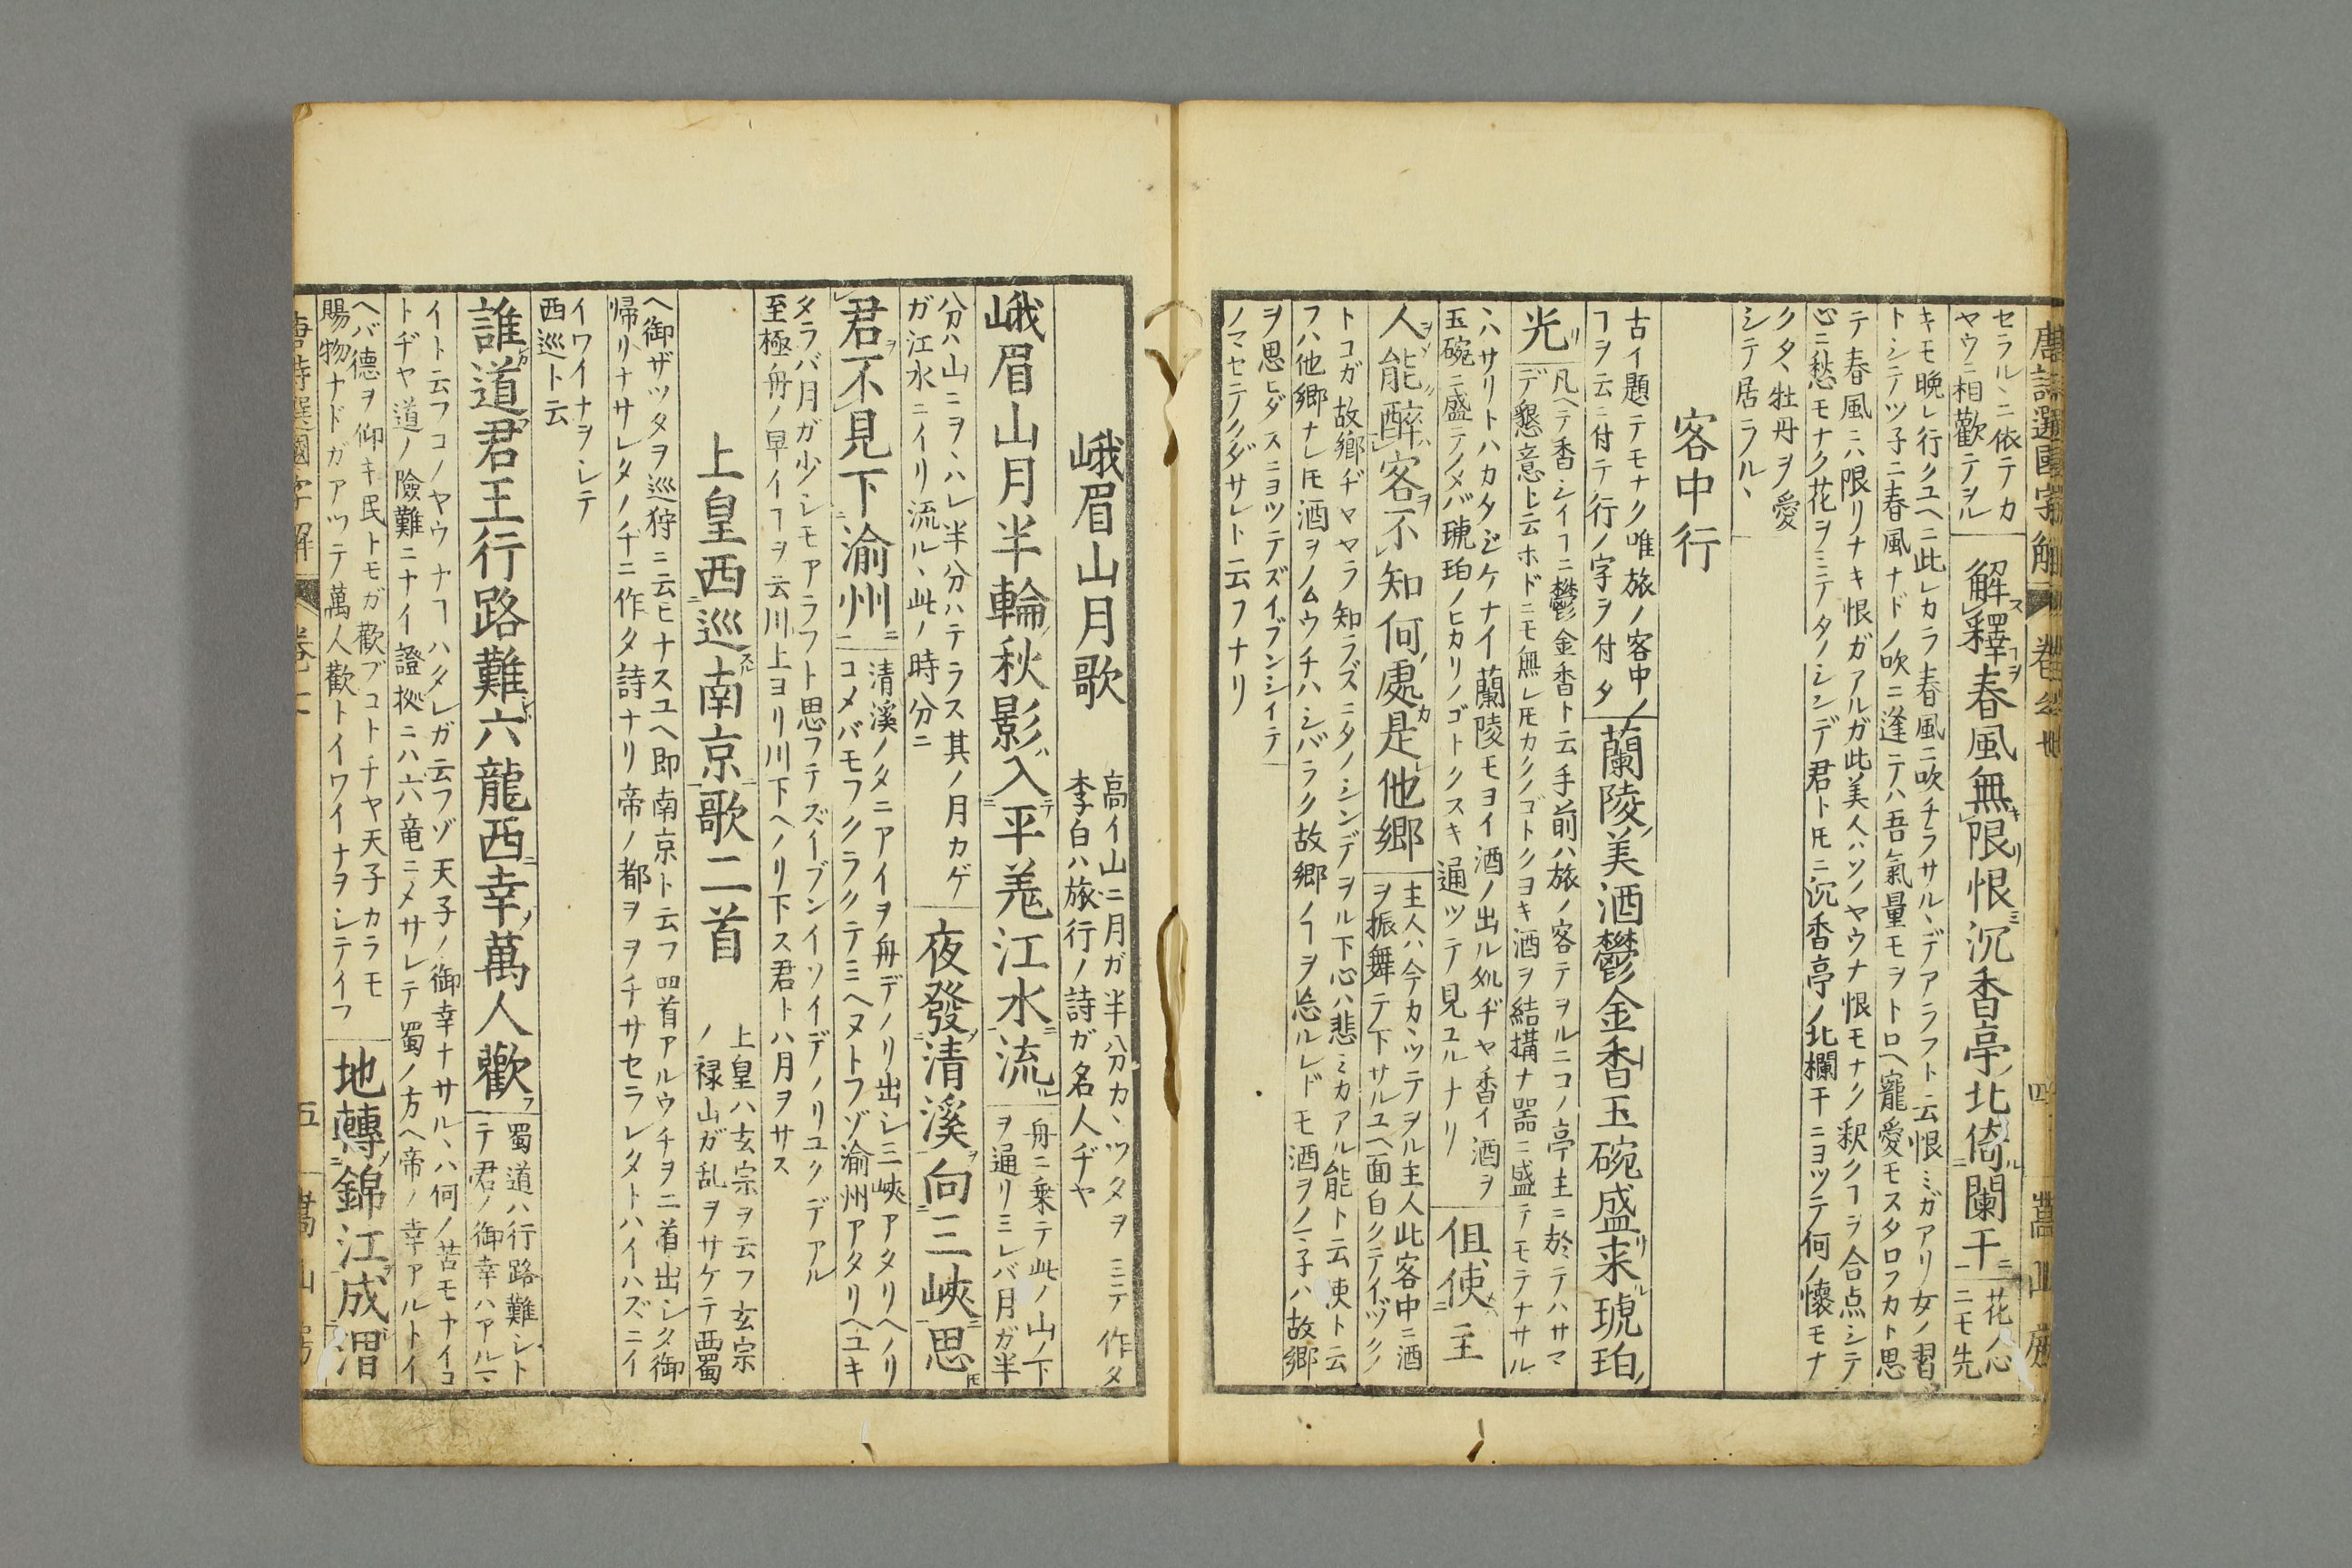 セラル丶ニ依テカ
ヤウニ相歡テヲル
解釋春風無限恨沉香亭北倚闌干
花ノ心
ニモ先
キモ晩レ行クユヘニ此レカラ春風ニ吹チラサル丶デアラフト云恨ミガアリ女ノ習
トシテツ子ニ春風ナドノ吹ニ逢テハ吾氣量モヲトロヘ寵愛モスタロフカト思
テ春風ニハ限リナキ恨ガアルガ此美人ハソノヤウナ恨モナク釈クヿヲ合点シテ
心ニ愁モナク花ヲミテタノシンデ君トㇳモニ沉香亭ノ北欄干ニヨツテ何ノ懐モナ
クタ丶牡丹ヲ愛
シテ居ラル丶
客中行
古イ題テモナク唯旅ノ客中ノ
ヿヲ云ニ付テ行ノ字ヲ付タ
蘭陵美酒鬱金香玉碗盛来琥珀
光
凡ヘテ香シイヿニ鬱金香ト云手前ハ旅ノ客テヲルニコノ亭主ニ於テハサマ
デ懇意ト云ホドニモ無レㇳモカクノゴトクヨキ酒ヲ結搆ナ器ニ盛テモテナサル
ハサリトハカタジケナイ蘭陵モヨイ酒ノ出ル処ヂヤ香イ酒ヲ
玉碗ニ盛テノメバ琥珀ノヒカリノゴトクスキ通ツテ見ユルナリ
但使主
人能醉客不知何處是他郷
主人ハ今カツテヲル主人此客中ニ酒
ヲ振舞テ下サルユヘ面白クテイヅクノ
トコガ故郷ヂヤヤラ知ラズニタノシンデヲル下心ハ悲ミカアル能ト云使ト云
フハ他郷ナレㇳモ酒ヲノムウチハシバラク故郷ノヿヲ忘ルレドモ酒ヲノマ子ハ故郷
ヲ思ヒダスニヨツテズイブンシイテ
ノマセテクダサレト云フナリ
峨眉山月歌
高イ山ニ月ガ半分カ丶ツタヲミテ作タ
李白ハ旅行ノ詩ガ名人ヂヤ
峨眉山月半輪秋影入平羗江水流
舟ニ乗テ此ノ山ノ下
ヲ通リミレバ月ガ半
分ハ山ニヲ丶ハレ半分ハテラス其ノ月カゲ
ガ江水ニイリ流ル丶此ノ時分ニ
夜發清溪向三峽思
君不見下渝州
清溪ノタニアイヲ舟デノリ出シ三峽アタリヘノリ
コメバモフクラクテミヘヌトフゾ渝州アタリヘユキ
タラバ月ガ少シモアラフト思フテズイブンイソイデノリユクデアル
至極舟ノ早イヿヲ云川上ヨリ川下ヘノリ下ス君トハ月ヲサス
上皇西巡南京歌二首
上皇ハ玄宗ヲ云フ玄宗
ノ禄山ガ乱ヲサケテ西蜀
ヘ御ザツタヲ巡狩ニ云ヒナスユヘ即南京ト云フ四首アルウチヲ二首出シタ御
帰リナサレタノチニ作タ詩ナリ帝ノ都ヲヲチサセラレタトハイハズニイ
イワイナヲシテ
西巡ト云
誰道君王行路難六龍西幸萬人歡
蜀道ハ行路難シト
テ君ノ御幸ハアルマ
イト云フコノヤウナヿハタレガ云フゾ天子ノ御幸ナサル丶ハ何ノ苦モナイコ
トヂヤ道ノ險難ニナイ證拠ニハ六竜ニメサレテ蜀ノ方ヘ帝ノ幸アルトイ
ヘバ德ヲ仰キ民トモガ歡ブコトチヤ天子カラモ
賜物ナドガアツテ萬人歡トイワイナヲシテイフ
地轉錦江成渭
唐詩選國字解
五
嵩山房